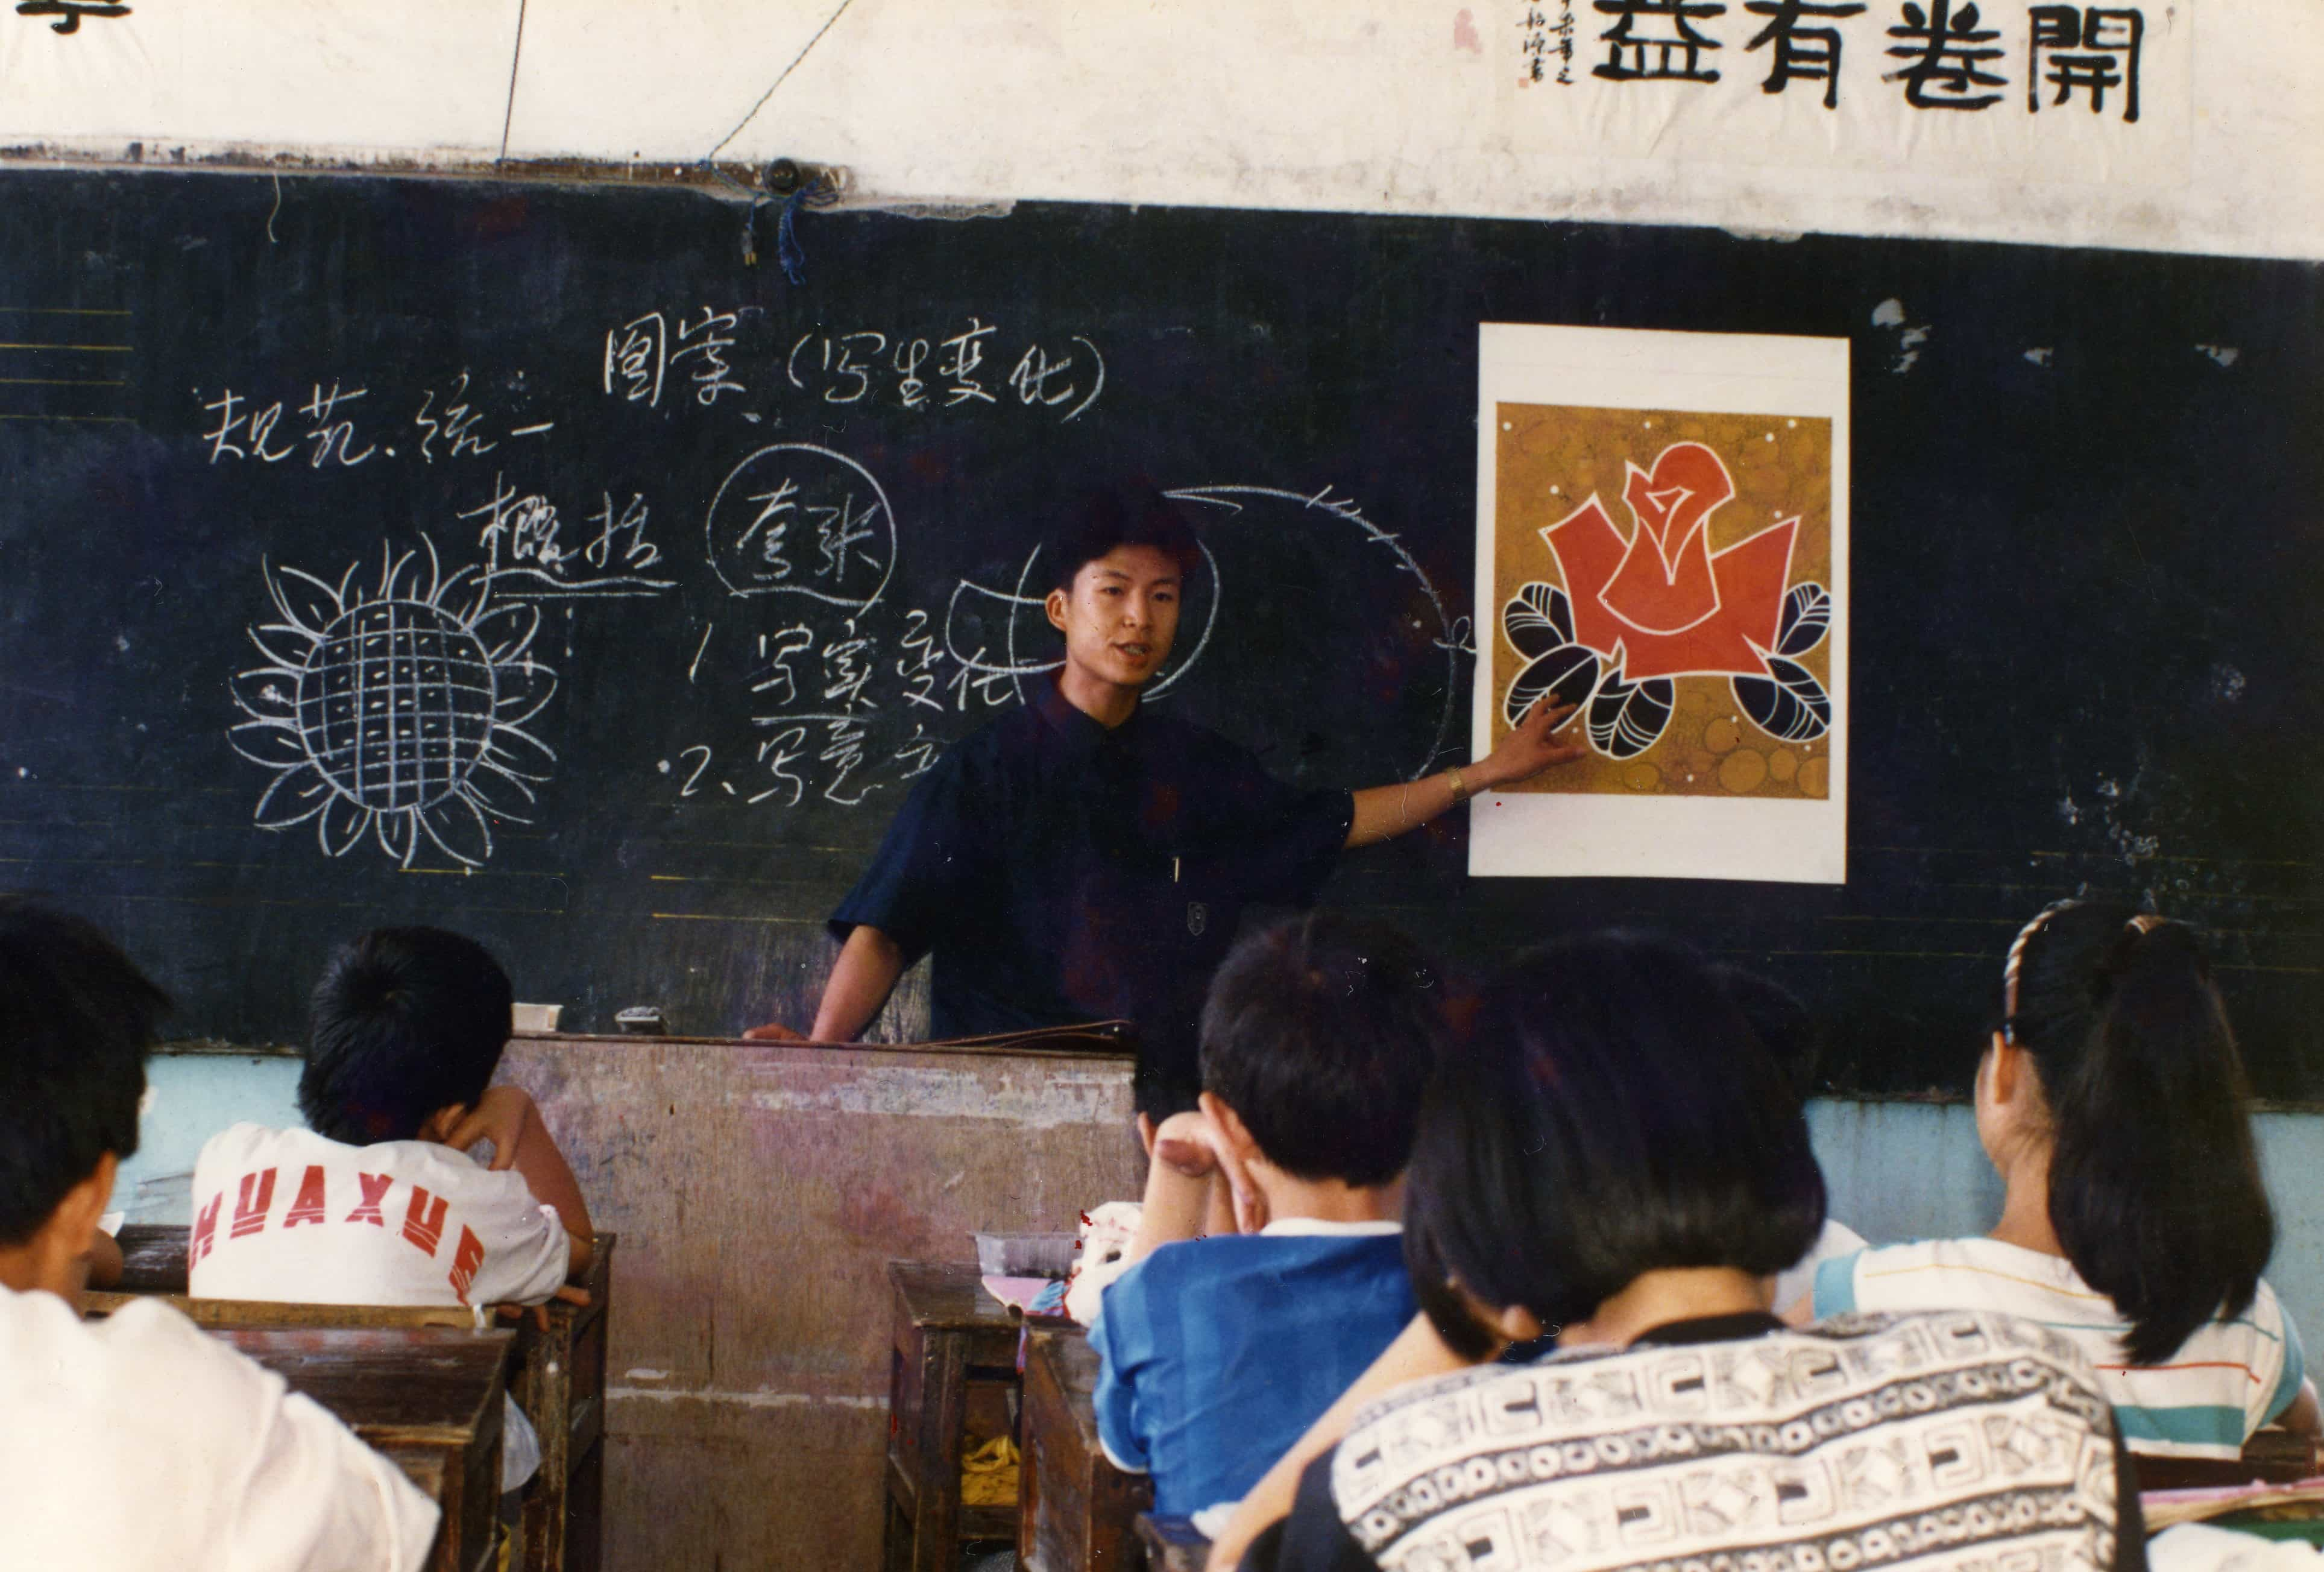 開卷有益
图案（写生变化）
规范.统一
概括 夸张
1 写实变化
2、写意
HUAXUE